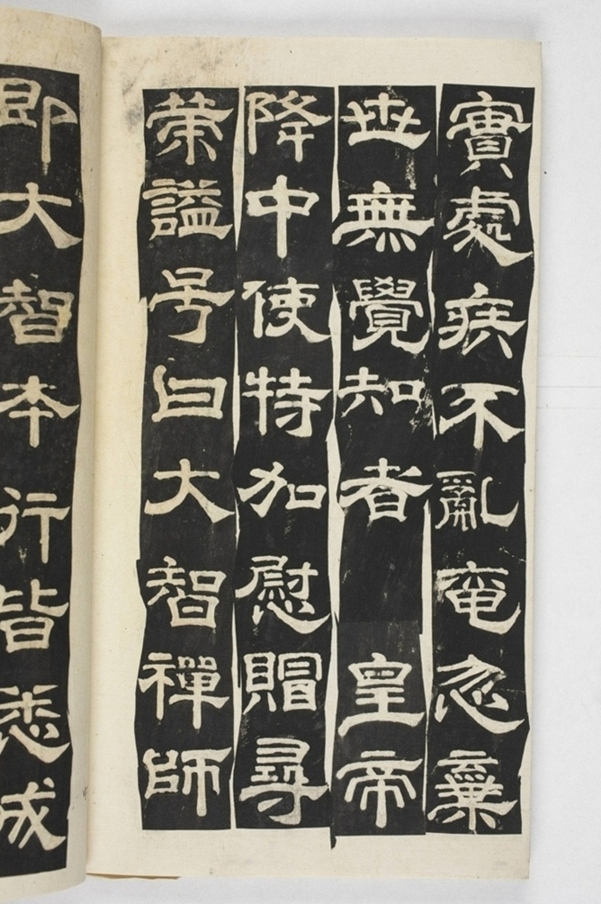 實處疾不亂奄忽棄
世無覺知者 皇帝
降中使特加慰賵尋
策謚号曰大智禪師
即大智本行皆悉成